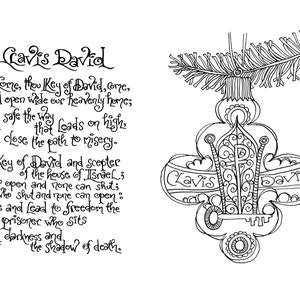 Clavis David
ome, thou Key of David, come,
d open wide our heavenly home;
safe the way
that Leads on high,
close the path to misery.
Key of David and scepter
of the house of Israel;
open and none can shut;
who shut and none can open:
e and Lead to freedom the
prisoner who sits
darkness and
the shadow of death.
CLavis David